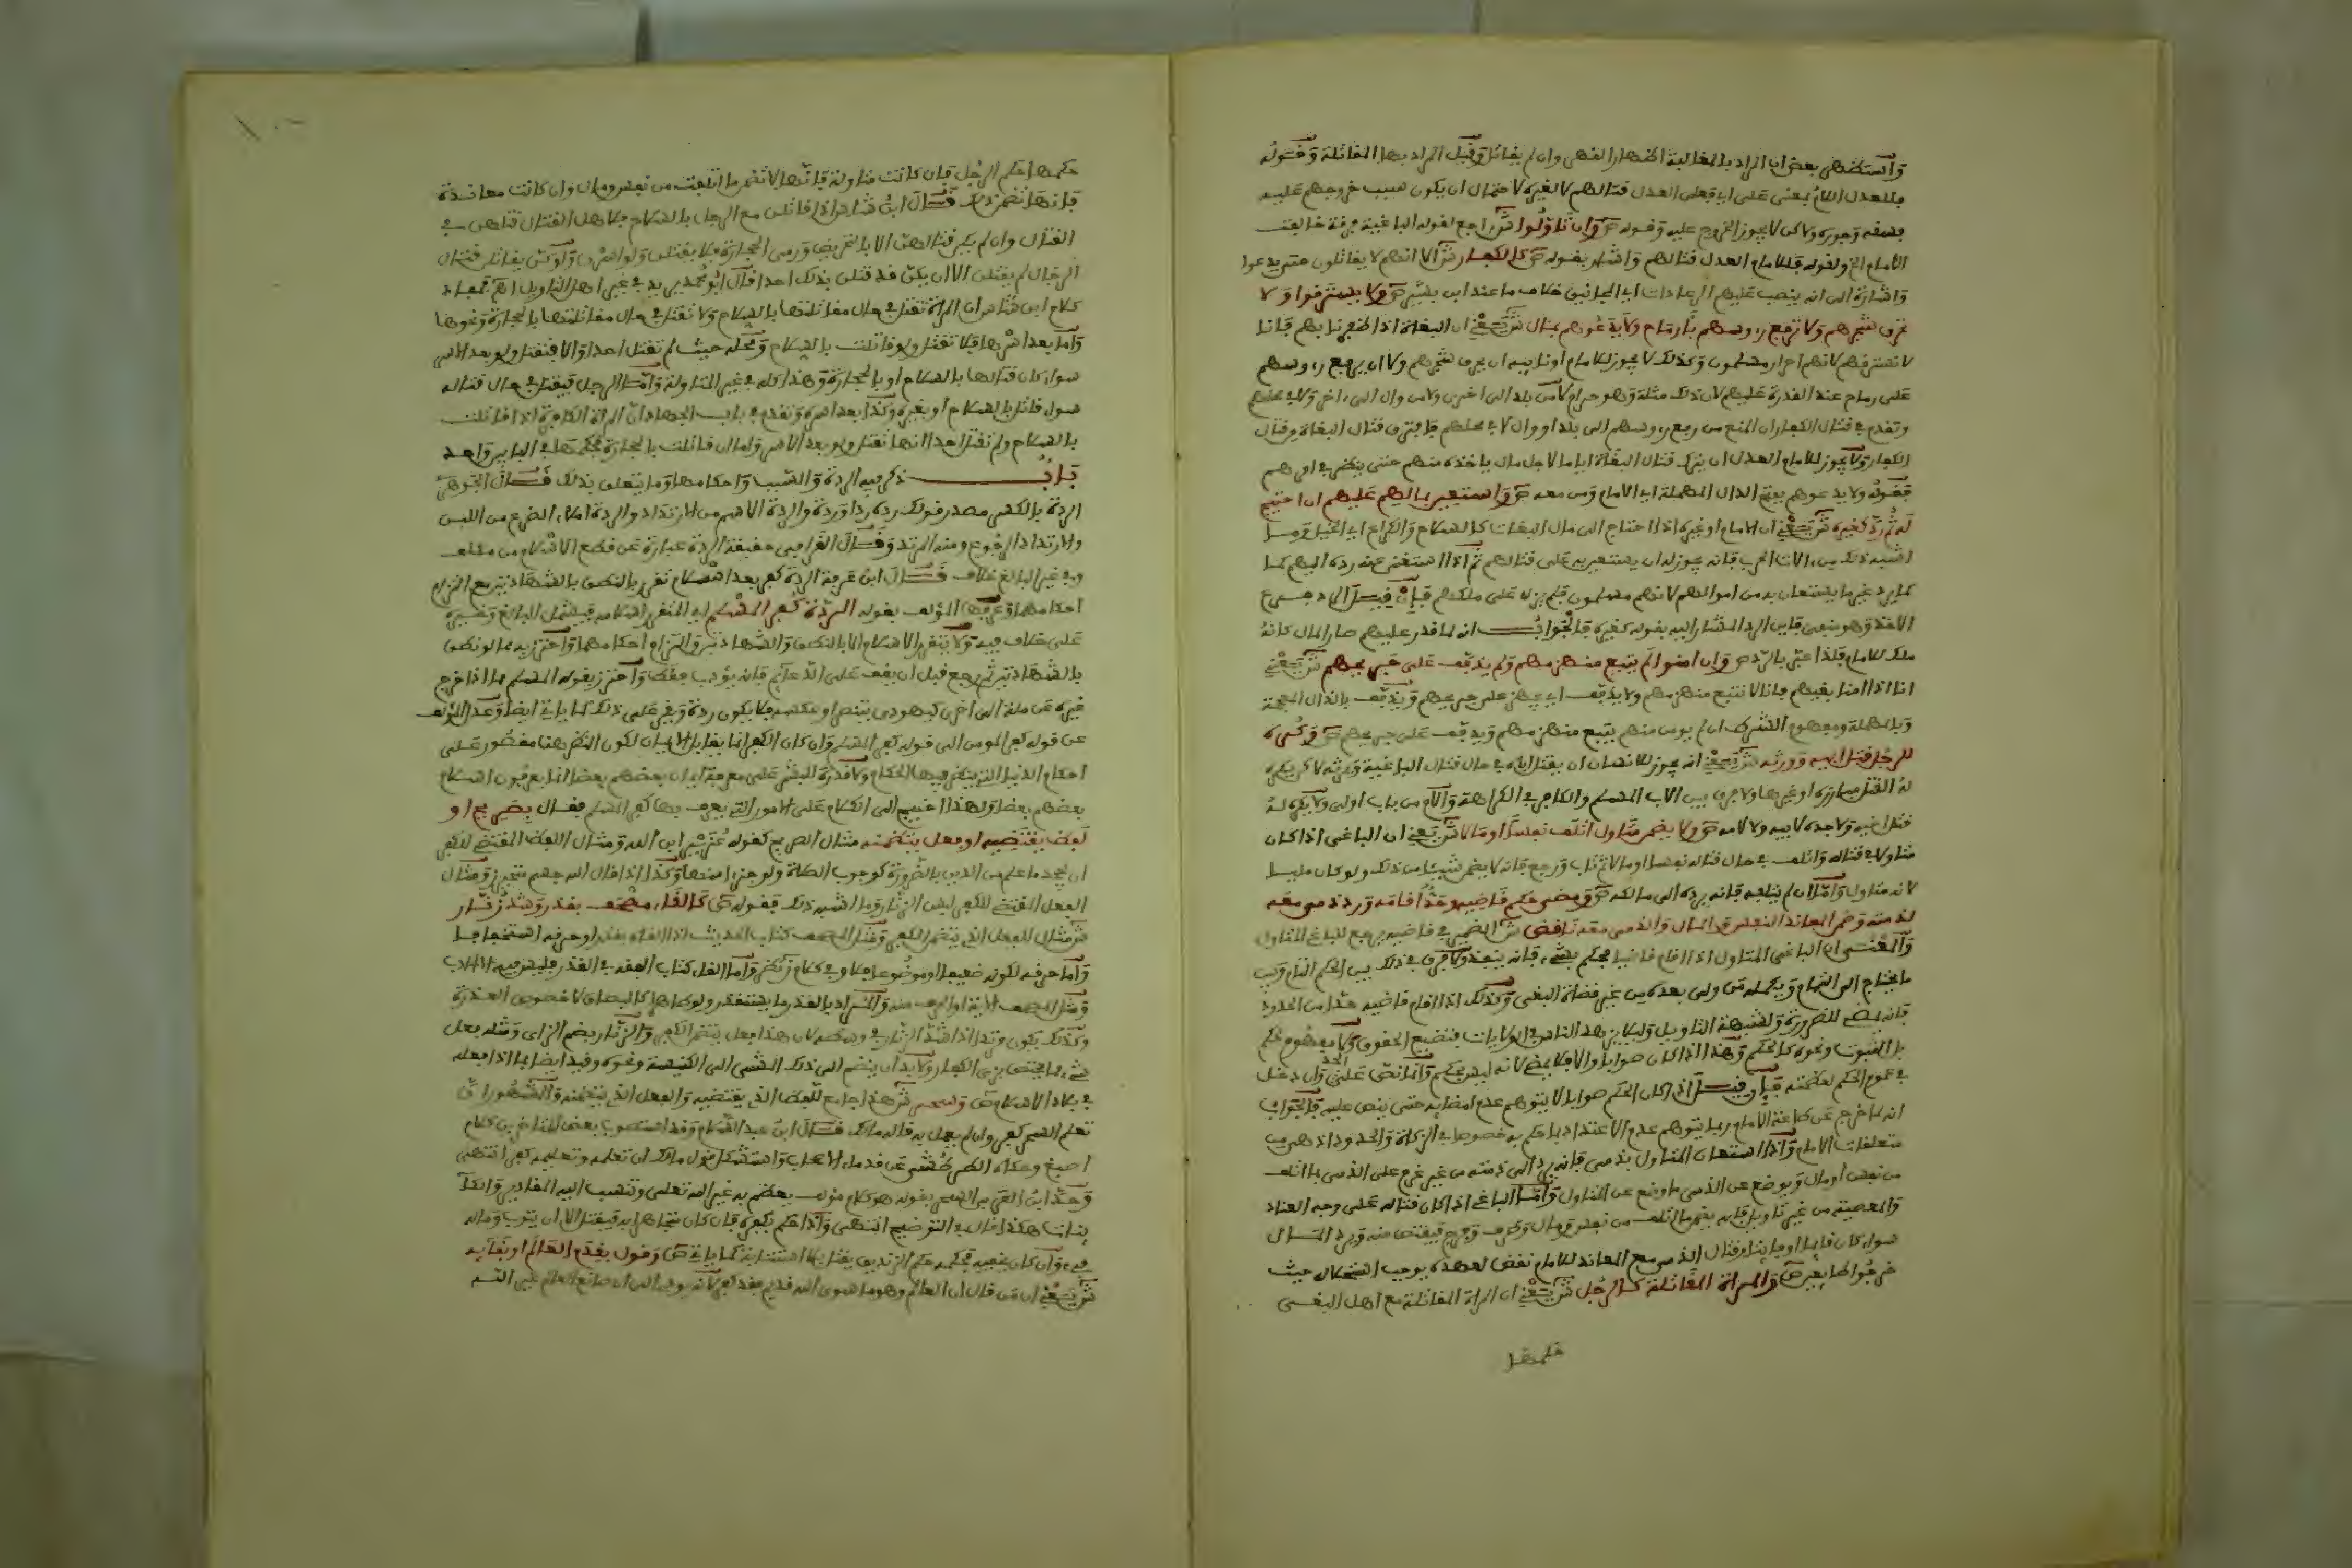 واستظهر بعض ان المراد بالمغالبة اظهار القهر وان لم يقاتل وقيل المراد بها المقاتلة وقوله
للعدل اللام بمعنى على اي فعلى العدل قتالهم لا لغيره لاحتمال ان يكون سبب خروجهم عليه
فسقه وجوره ولاكن لا يجوز الخروج عليه وقوله ص وان تاولوا ش راجع لقوله الباغية فرقة خالفت
الامام الخ ولقوله فللامام العدل قتالهم واشار بقوله ص كالكفار ش الا انهم لا يقاتلون حتى يدعوا
واشارة الى انه ينصب عليهم الرعادات اي المجانيق خلاف ما عند ابن بشير ص ولا يسترقوا ولا
يحرق شجرهم ولا ترفع رءوسهم بارماح ولا يدعوهم بمال ش يعني ان البغاة اذا ظفرنا بهم فانا
لا نسترقهم لانهم احرار مسلمون وكذلك لا يجوز للامام او نايبه ان يحرق شجرهم ولا ان يرفع رءوسهم
على رماح عند القدرة عليهم لان ذلك مثلة وهو حرام لا من بلد الى اخرى ولا من وال الى ءاخر ولا في محلهم
وتقدم في قتال الكفار ان المنع من رفع رءوسهم الى بلد او وال لا في محلهم فافترق قتال البغاة وقتال
الكفار ولا يجوز للامام العدل ان يترك قتال البغاة اياما لاجل مال ياخذه منهم حتى ينظر في امرهم
فقوله ولا يدعوهم بفتح الدال المهملة اي الامام ومن معه ص واستعين بمالهم عليهم ان احتيج
له ثم رد كغيره ش يعني ان الامام او غيره اذا احتاج الى مال البغات كالسلاح والكراع اي الخيل وما
اشبه ذلك من ءالات الحرب فانه يجوز له ان يستعين به على قتالهم ثم اذا استغنى عنه رده اليهم كما
كما يرد غير ما يستعان به من اموالهم لانهم مسلمون فلم يزل على ملكهم فان قيل الرد فرع
الاخذ وهو منفي فاين الرد المشار اليه بقوله كغيره فالجواب انه لما قدر عليهم صار المال كانه
ملك للامام فلذا عبر بالرد ص وان امنوا لم يتبع منهزمهم ولم يذفف على جريحهم ش يعني
انا اذا امنا بغيهم فانا لا نتبع منهزمهم ولا يذفف اي يجهز على جريحهم ويذفف بالذال المعجمة
وبالمهملة ومفهوم الشرط ان لم يومن منهم يتبع منهزمهم ويذفف على جريحهم ص وكره
للرجل قتل ابيه وورثه ش يعني انه يجوز للانسان ان يقتل اباه في حال قتال الباغية ويرثه لاكن يكره
له القتل مبارزة او غيرها ولا فرق بين الاب المسلم والكافر في الكراهة والام من باب اولى ولا يكره له
قتل اخيه ولا جده لابيه ولا لامه ص ولا يضمن متاول اتلف نفسا او مالا ش يعني ان الباغي اذا كان
متاولا في قتاله واتلف في حال قتاله نفسا او مالا ثم تاب ورجع فانه لا يضمن شيئا من ذلك ولو كان مليا
لانه متاول واما ان لم يتلفه فانه يرده الى مالكه ص ومضى حكم قاضيه وحد اقامه ورد ذمي معه
لذمته وضمن المعاند النفس والمال والذمي معه ناقض ش الضمير في قاضيه يرجع للباغي المتاول
والمعنى ان الباغي المتاول اذا اقام قاضيا فحكم بشيء فانه ينفذ ولا فرق في ذلك بين الحكم التام وبين
ما يحتاج الى التمام ويكمله من ولي بعده من غير قضاة البغي وكذلك اذا اقام قاضيه حدا من الحدود
فانه يمضي للضرورة ولشبهة التاويل وليلا يزهد الناس في الولايات فتضيع الحقوق ولا مفهوم لحكم
بل الثبوت ونحوه كالحكم وهذا اذا كان صوابا والا فلا يمضي لانه ليس بحكم وانما نص على الحد وان دخل
في عموم الحكم لعظمته فان قيل اذا كان الحكم صوابا لا يتوهم عدم امضايه حتى ينص عليه فالجواب
انه لما خرج عن طاعة الامام ربما يتوهم عدم الاعتداد بما حكم به خصوصا في الزكاة والحدود اذ هي من
متعلقات الامام واذا استعان المتاول بذمي فانه يرد الى ذمته من غير غرم على الذمي لما اتلف
من نفس او مال ويوضع عن الذمي ما وضع عن المتاول واما الباغي اذا كان قتاله على وجه العناد
والمعصية من غير تاويل فانه يضمن ما اتلف من نفس ومال وطرف وفرج فيقتص منه ويرد المال
سواء كان قايما او فايتا وقتال الذمي مع المعاند للامام نقض لعهده يوجب استحلاله حيث
خرجوا طايعين ص والمراة المقاتلة كالرجل ش يعني ان المراة المقاتلة مع اهل البغي
حكمها
حكمها حكم الرجل فان كانت متاولة فانها لا تضمن ما اتلفت من نفس ومال وان كانت معاندة
فانها تضمن ذلك قال ابن شاس اذا قاتلن مع الرجل بالسلاح فلاهل القتال قتلهن في
القتال وان لم يكن قتالهن الا بالتحريض ورمي الحجارة فلا يقتلن ولو اسرن ولو كن يقاتلن قتال
الرجال لم يقتلن الا ان يكن قد قتلن بذلك احدا قال ابو محمد يريد في غير اهل التاويل
كلام ابن شاس ان المراة تقتل في حال مقاتلتها بالسلاح ولا تقتل في حال مقاتلتها بالحجارة ونحوها
واما بعد اسرها فلا تقتل ولو قاتلت بالسلاح ومحله حيث لم تقتل احدا والا فتقتل ولو بعد الاسر
سواء كان قتالها بالسلاح او بالحجارة وهذا كله في غير المتاولة واما الرجل فيقتل في حال قتاله
سواء قاتل بالسلاح او بغيره وكذا بعد اسره وتقدم في باب الجهاد ان المراة الكافرة اذا قاتلت
بالسلاح ولم تقتل احدا انها تقتل ولو بعد الاسر واما ان قاتلت بالحجارة فحكمها في البابين واحد
باب ذكر فيه الردة والسب واحكامها وما يتعلق بذلك قال الجوهري
الردة بالكسر مصدر قولك رده ردا وردة والردة الاسم من الارتداد والردة امتلاء الضرع من اللبن
والارتداد الرجوع ومنه المرتد وقال القرافي حقيقة الردة عبارة عن قطع الاسلام من مكلف
وفي غير البالغ خلاف قال ابن عرفة الردة كفر بعد اسلام تقرر بالنطق بالشهادتين مع التزام
احكامهما وعرفها المؤلف بقوله الردة كفر المسلم اي المتقرر اسلامه فيشمل البالغ وغيره
على خلاف فيه ولا يتقرر الاسلام الا بالنطق بالشهادتين والتزام احكامهما واحترز به مما لو نطق
بالشهادتين ثم رجع قبل ان يقف على الدعايم فانه يؤدب فقط واحترز بقوله المسلم مما اذا خرج
غيره عن ملة الى اخرى كيهودي يتنصر او عكسه فلا يكون ردة ويقر على ذلك كما ياتي ايضا وعدل المؤلف
عن قوله كفر المومن الى قوله كفر المسلم وان كان الكفر انما يقابل الايمان لكون النظر هنا مقصور على
احكام الدنيا التي ينظر فيها الحكام ولا قدرة للبشر على معرفة ايمان بعضهم بعضا انما يعرفون اسلام
بعضهم بعضا ولهذا احتيج الى الكلام على الامور التي يعرف بها كفر المسلم فقال بصريح او
لفظ يقتضيه او فعل يتضمنه مثال الصريح كقوله عزير ابن الله ومثال اللفظ المقتضي للكفر
ان يجحد ما علم من الدين بالضرورة كوجوب الصلاة ولو جزءا منها وكذا اذا قال الله جسم متحيز ومثال
الفعل المقتضي للكفر لبس الزنار وما اشبه ذلك فقوله ص كالقاء مصحف بقذر وشد زنار
ش مثال للفعل الذي يتضمن الكفر ومثل المصحف كتاب الحديث اذا القاه بقذر او حرقه استخفافا
واما حرقه لكونه ضعيفا او موضوعا فلا وفي كلام ز نظر واما القاء كتاب الفقه في القذر فليس فيه الا الادب
ومثل المصحف الاية او الحرف منه والمراد بالقذر ما يستقذر ولو طاهرا كالبصاق لا خصوص العذرة
وكذلك يكون مرتدا اذا شد الزنار في وسطه لان هذا فعل يتضمن الكفر والزنار بضم الزاي ومثله فعل
شيء مما يختص بزي الكفار ولا بد ان ينضم الى ذلك المشي الى الكنيسة ونحوه وقيد ايضا بما اذا فعله
في بلاد الاسلام ص وسحر ش هذا جامع للفظ الذي يقتضيه والفعل الذي يتضمنه والمشهور ان
تعلم السحر كفر وان لم يعمل به قاله مالك قال ابن عبد السلام وقد استصوب بعض المتاخرين كلام
اصبغ وحكاه الطرطوشي عن قدماء الاصحاب واستشكل قول مالك ان تعلمه وتعليمه كفر انتهى
وحد ابن العربي السحر بقوله هو كلام مؤلف يعظم به غير الله تعالى وتنسب اليه المقادير والكا
ينات هكذا قال في التوضيح انتهى واذا حكم بكفره فان كان متجاهرا به فيقتل الا ان يتوب وماله
فيء وان كان يخفيه فحكمه حكم الزنديق يقتل بلا استتابة كما ياتي ص وقول بقدم العالم او بقايه
ش يعني ان من قال ان العالم وهو ما سوى الله قديم فقد كفر لانه يودي الى ان صانع العالم غير الله